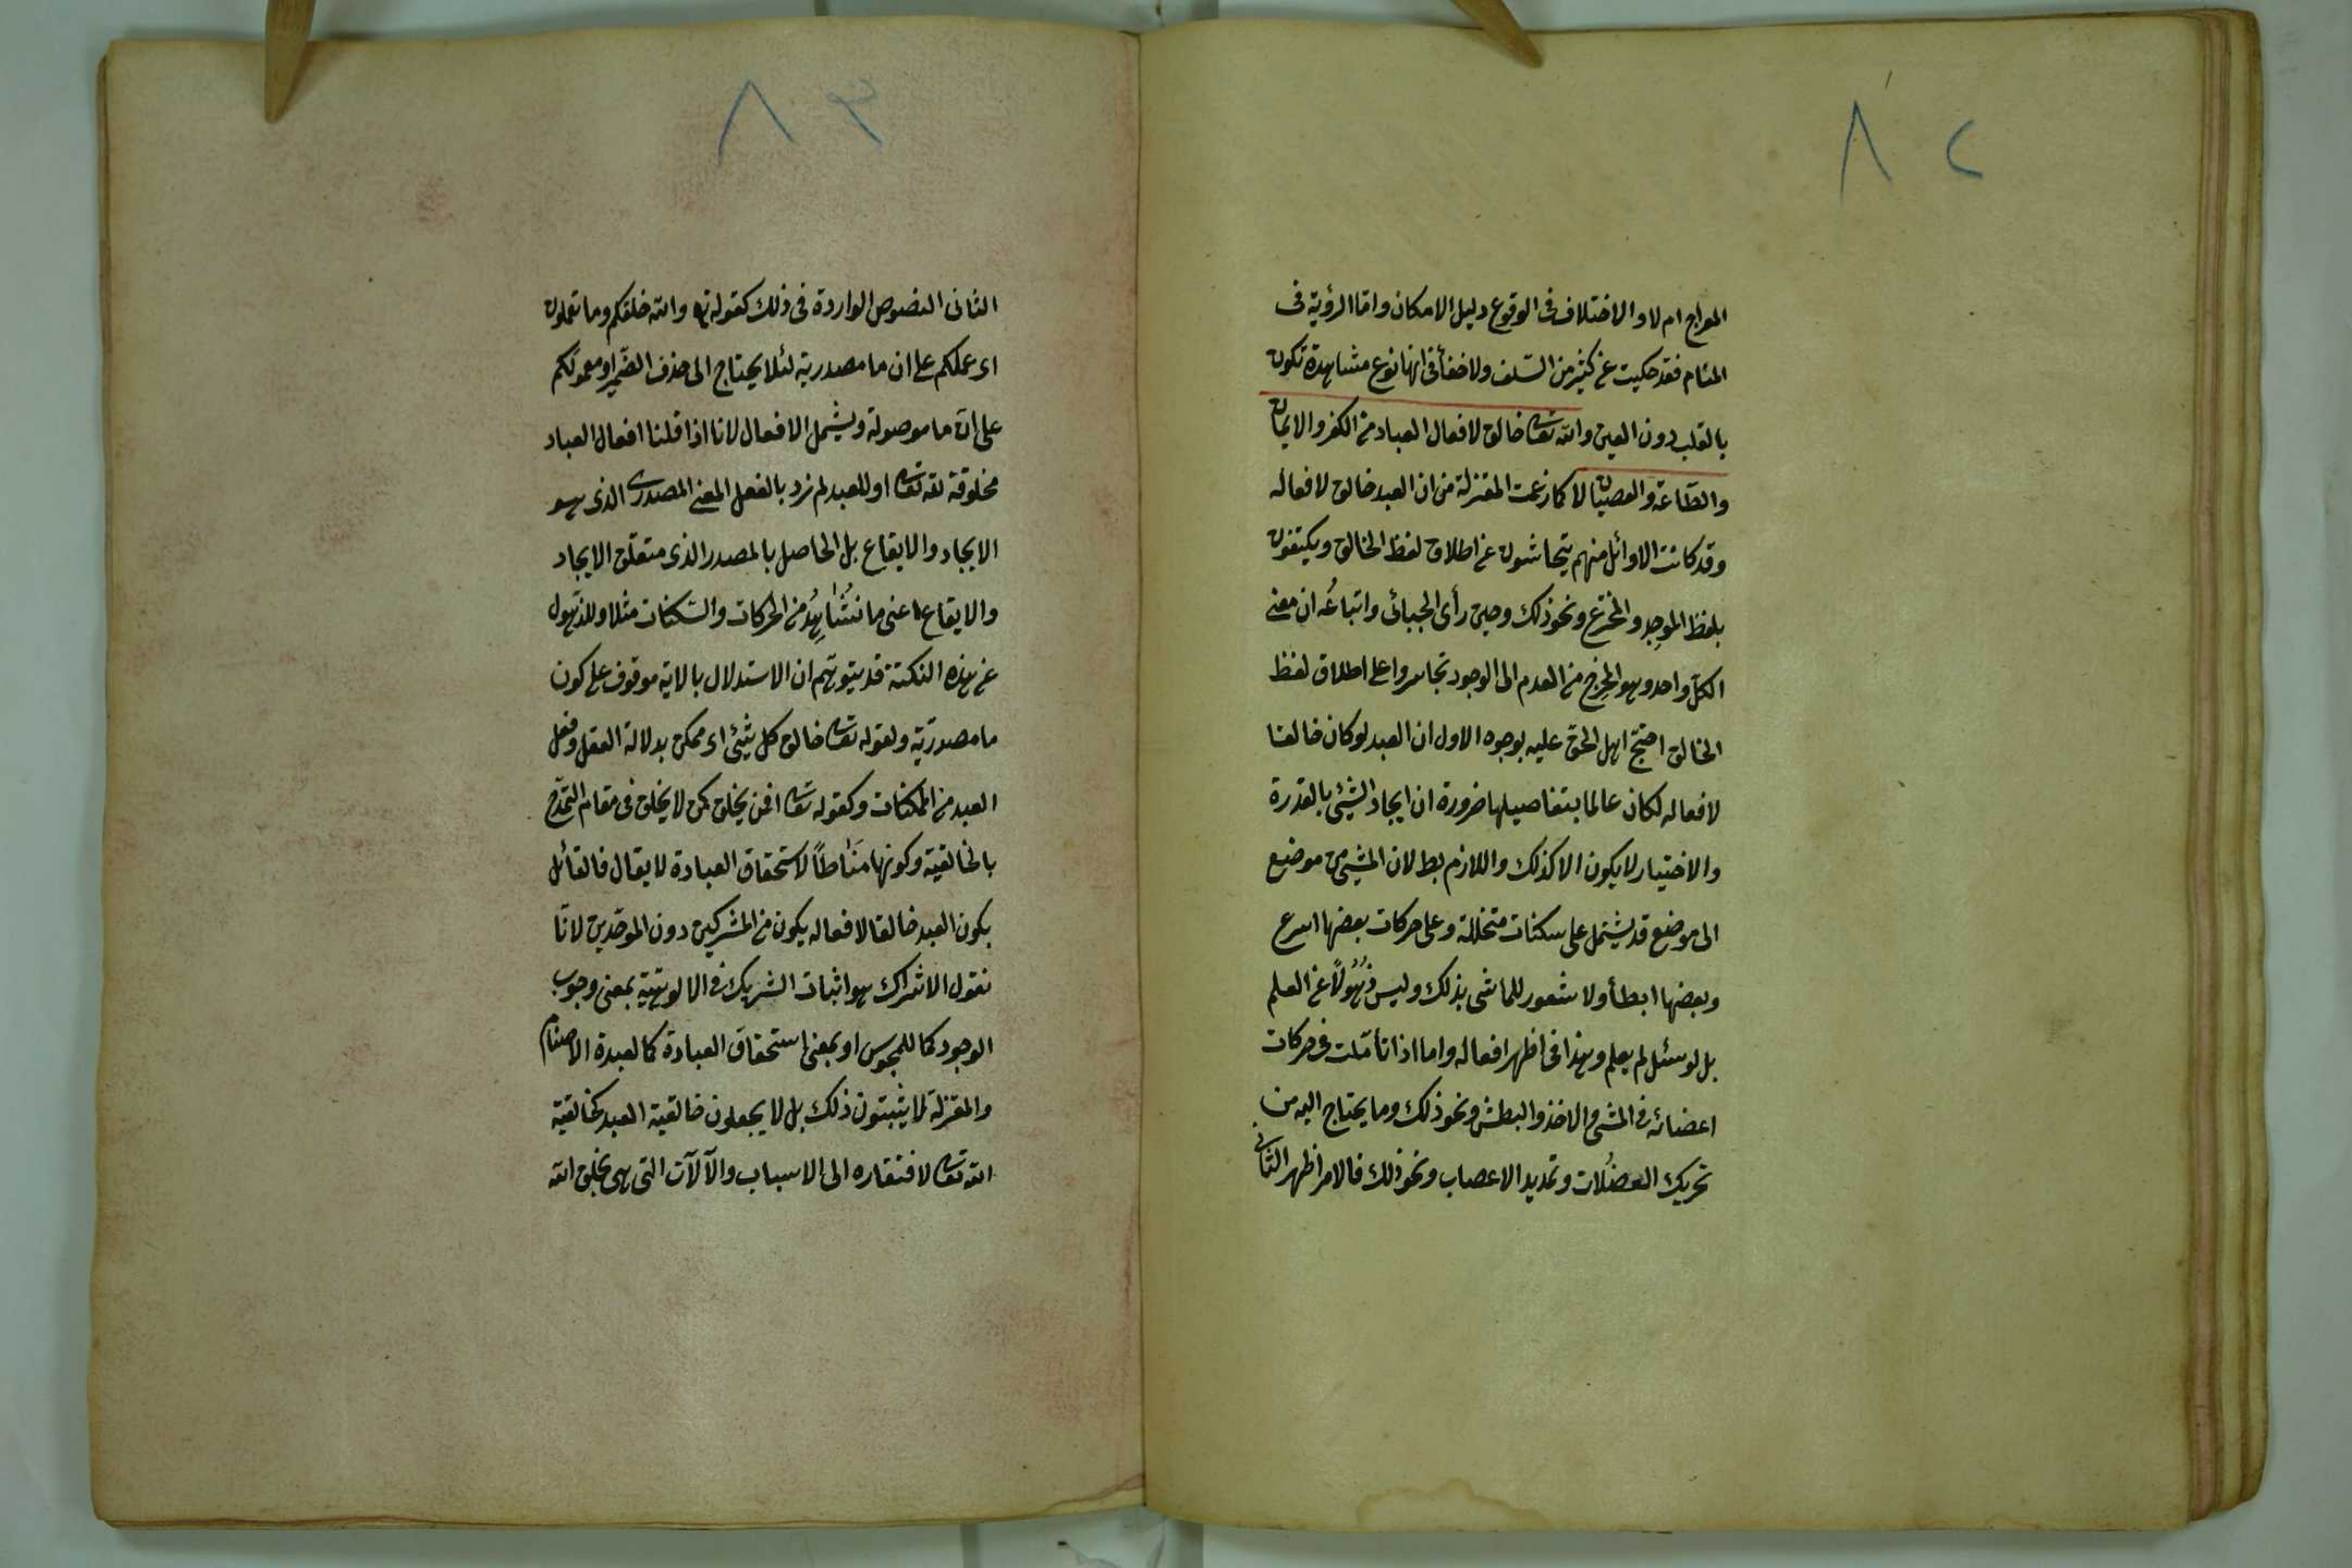 ٨٢
المعراج ام لا والاختلاف فى الوقوع دليل الامكان واما الرؤية فى
المنام فقد حكيت عن كثير من السلف ولا خفأ فى انها نوع مشاهدة تكون
بالقلب دون العين والله تعالى خالق لافعال العباد من الكفر والايمان
والطّاعة والعصيان لا كما زعمت المعتزلة من ان العبد خالق لافعاله
وقد كانت الاوائل منهم يتحاشون عن اطلاق لفظ الخالق ويكتفون
بلفظ الموجِد والمخترع ونحو ذلك وحين رأى الجبائى واتباعُه ان معنى
الكلّ واحد وهو المخرِج من العدم الى الوجود تجاسروا على اطلاق لفظ
الخالق احتجّ اهل الحق عليه بوجوه الاول ان العبد لو كان خالقا
لافعاله لكان عالما بتفاصيلها ضرورة ان ايجاد الشئ بالقدرة
والاختيار لا يكون الا كذلك واللازم بط لان المشى من موضع
الى موضع قد يشتمل على سكنات متخللة وعلى حركات بعضها اسرع
وبعضها ابطأ ولا شعور للماشى بذلك وليس ذُهُولاً عن العلم
بل لو سئل لم يعلم وهذا فى اظهر افعاله واما اذا تأمّلت فى حركات
اعضائه فى المشى والاخذ والبطش ونحو ذلك وما يحتاج اليه من
تحريك العضُلات وتمديد الاعصاب ونحو ذلك فالامر اظهر الثانى
٨٣
الثانى النصوص الواردة فى ذلك كقوله تع والله خلقكم وما تعملون
اى عملكم على ان ما مصدرية لئلا يحتاج الى حذف الضّمير او معمولكم
على انّ ما موصولة ويشمل الافعال لانا اذا قلنا افعال العباد
مخلوقة لله تعالى او للعبد لم نرد بالفعل المعنى المصدرى الذى هو
الايجاد والايقاع بل الحاصل بالمصدر الذى متعلّق الايجاد
والايقاع اعنى ما نُشَاهِدُ من الحركات والسّكنات مثلا وللذّهول
عن هذه النكتة قد يتوهّم ان الاستدلال بالاية موقوف على كون
ما مصدريّة ولقوله تعالى خالق كل شيئ اى ممكن بدلالة العقل وفعل
العبد من الممكنات وكقوله تعالى افمن يخلق كمن لا يخلق فى مقام التمدّح
بالخالقية وكونها مَنَاطاً لاستحقاق العبادة لا يقال فالقائل
بكون العبد خالقا لافعاله يكون من المشركين دون الموحّدين لانّا
نقول الاشراك هو اثبات الشريك فى الالوهية بمعنى وجوب
الوجود كما للمجوس او بمعنى استحقاق العبادة كما لعبدة الاصنام
والمعتزلة لا يثبتون ذلك بل لا يجعلون خالقية العبد كخالقية
الله تعالى لافتقاره الى الاسباب والآلآت التى هى بخلق الله